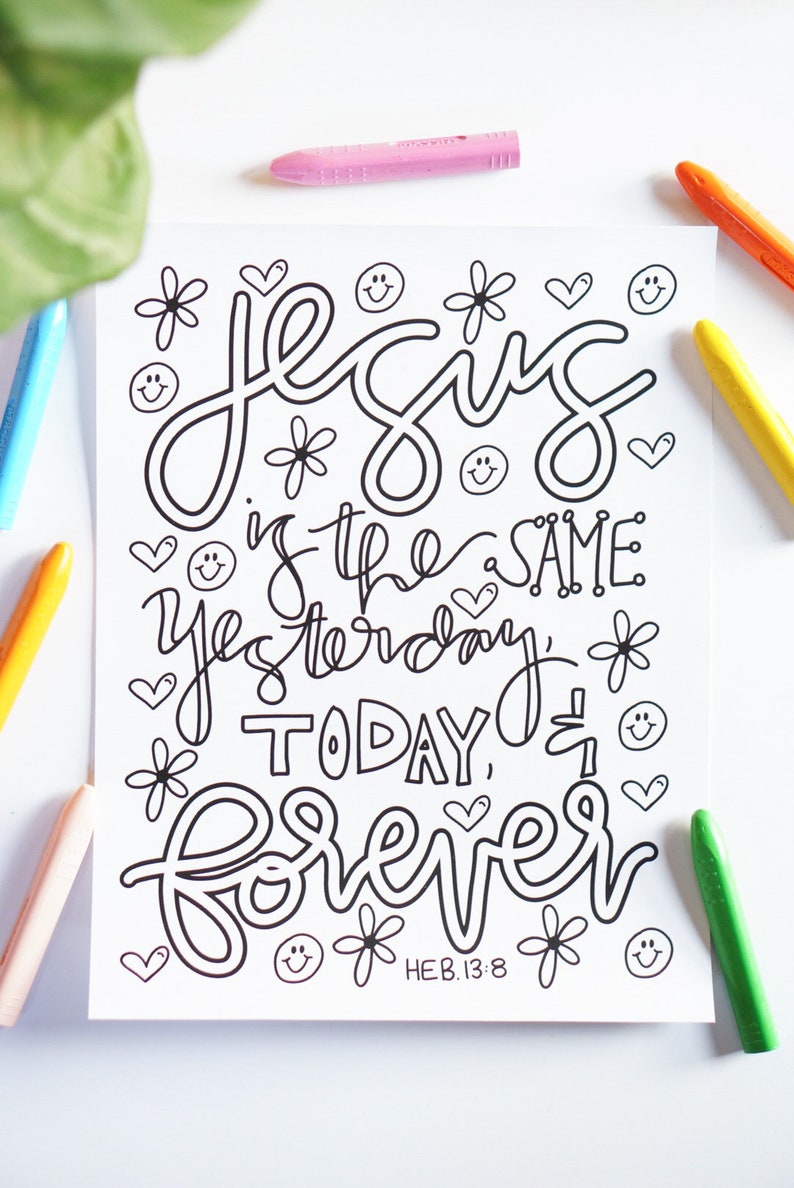 Jesus
is the SAME
Yesterday,
TODAY, &
forever
HEB. 13:8